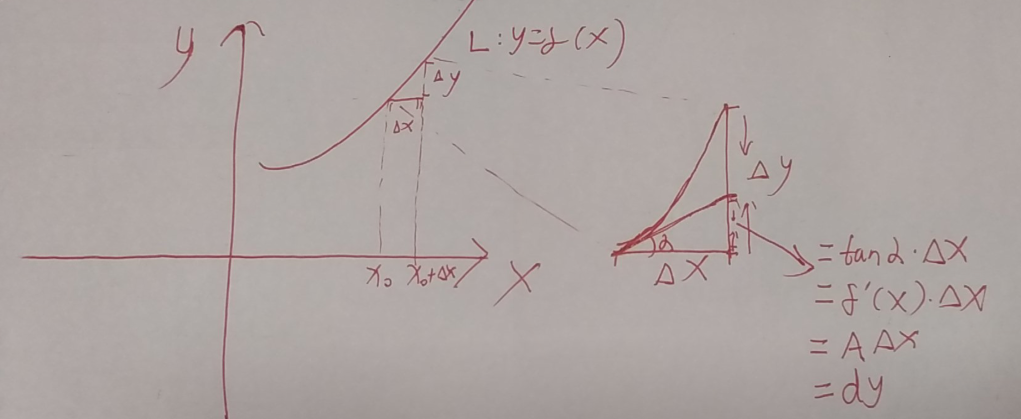 y
L: y=f(x)
Δy
Δx
x₀
x₀+Δx
X
Δy
α
ΔX
=tanα·ΔX
=f'(x)·ΔX
=AΔX
=dy